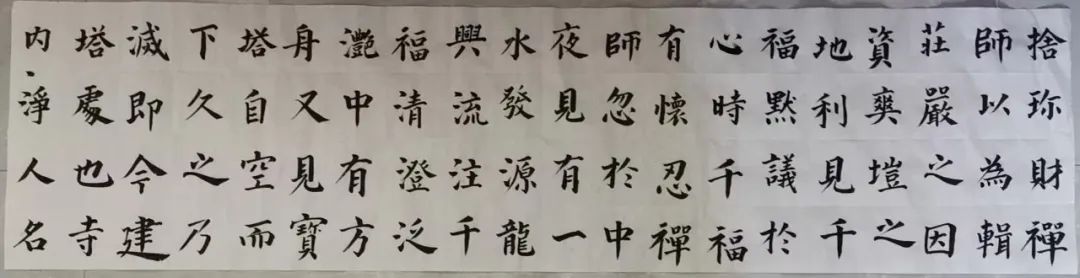 捨珎財禪
師以為輯
莊嚴之因
資爽塏之
地利見千
福默議於
心時千福
有懷忍禪
師忽於中
夜見有一
水發源龍
興流注千
福清澄泛
灩中有方
身又見寶
塔自空而
下久之乃
滅即今建
塔處也寺
內淨人名